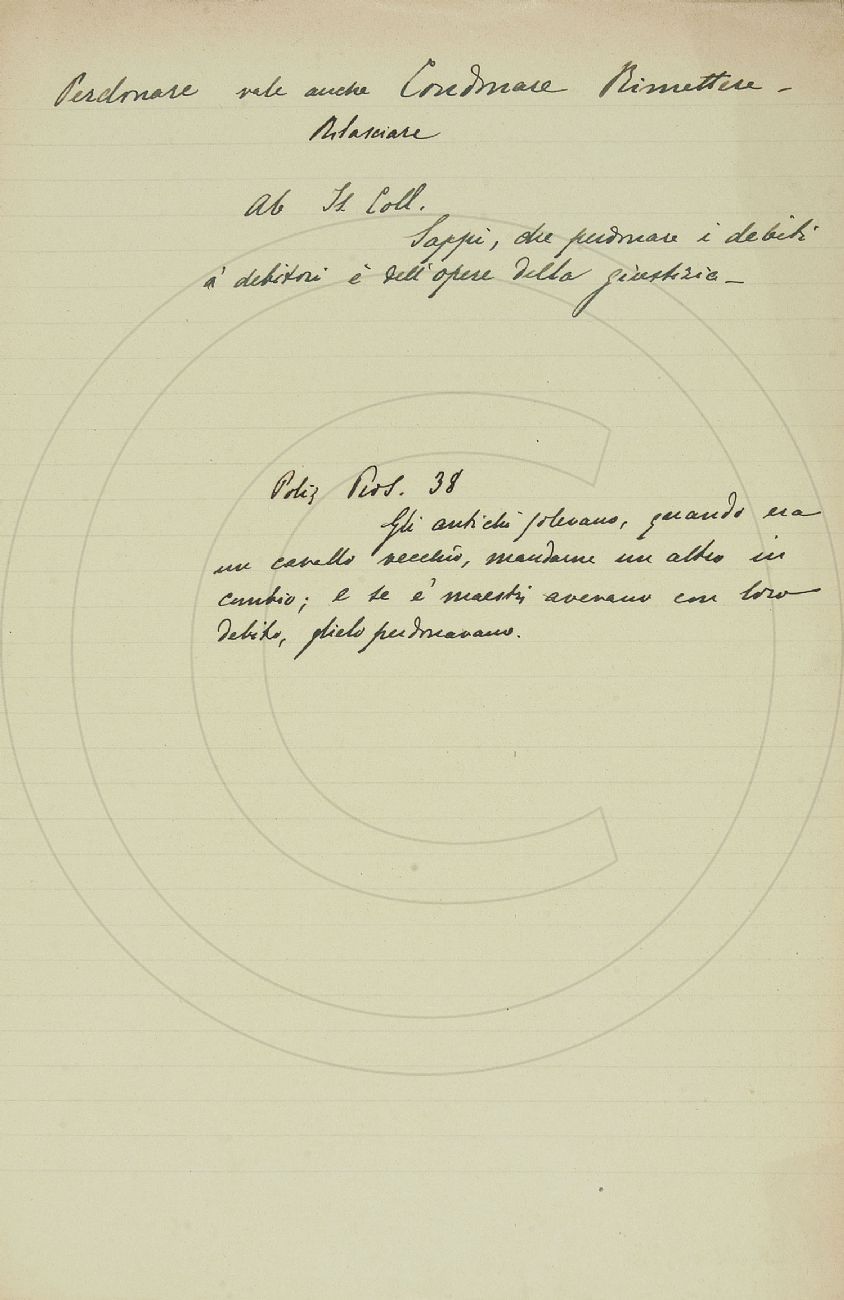 Perdonare vale anche Condonare Rimettere -
Rilasciare
Ab Is Coll.
Sappi, che perdonare i debiti
a' debitori è dell'opere della giustizia -
Poliz Pros. 38
Gli antichi solevano, quando era
un cavallo vecchio, mandarne un altro in
cambio; e se e' maestri avevano con loro
debito, glielo perdonavano.